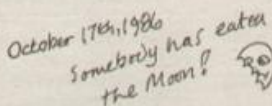 October 17th, 1986
Somebody has eaten
the Moon!